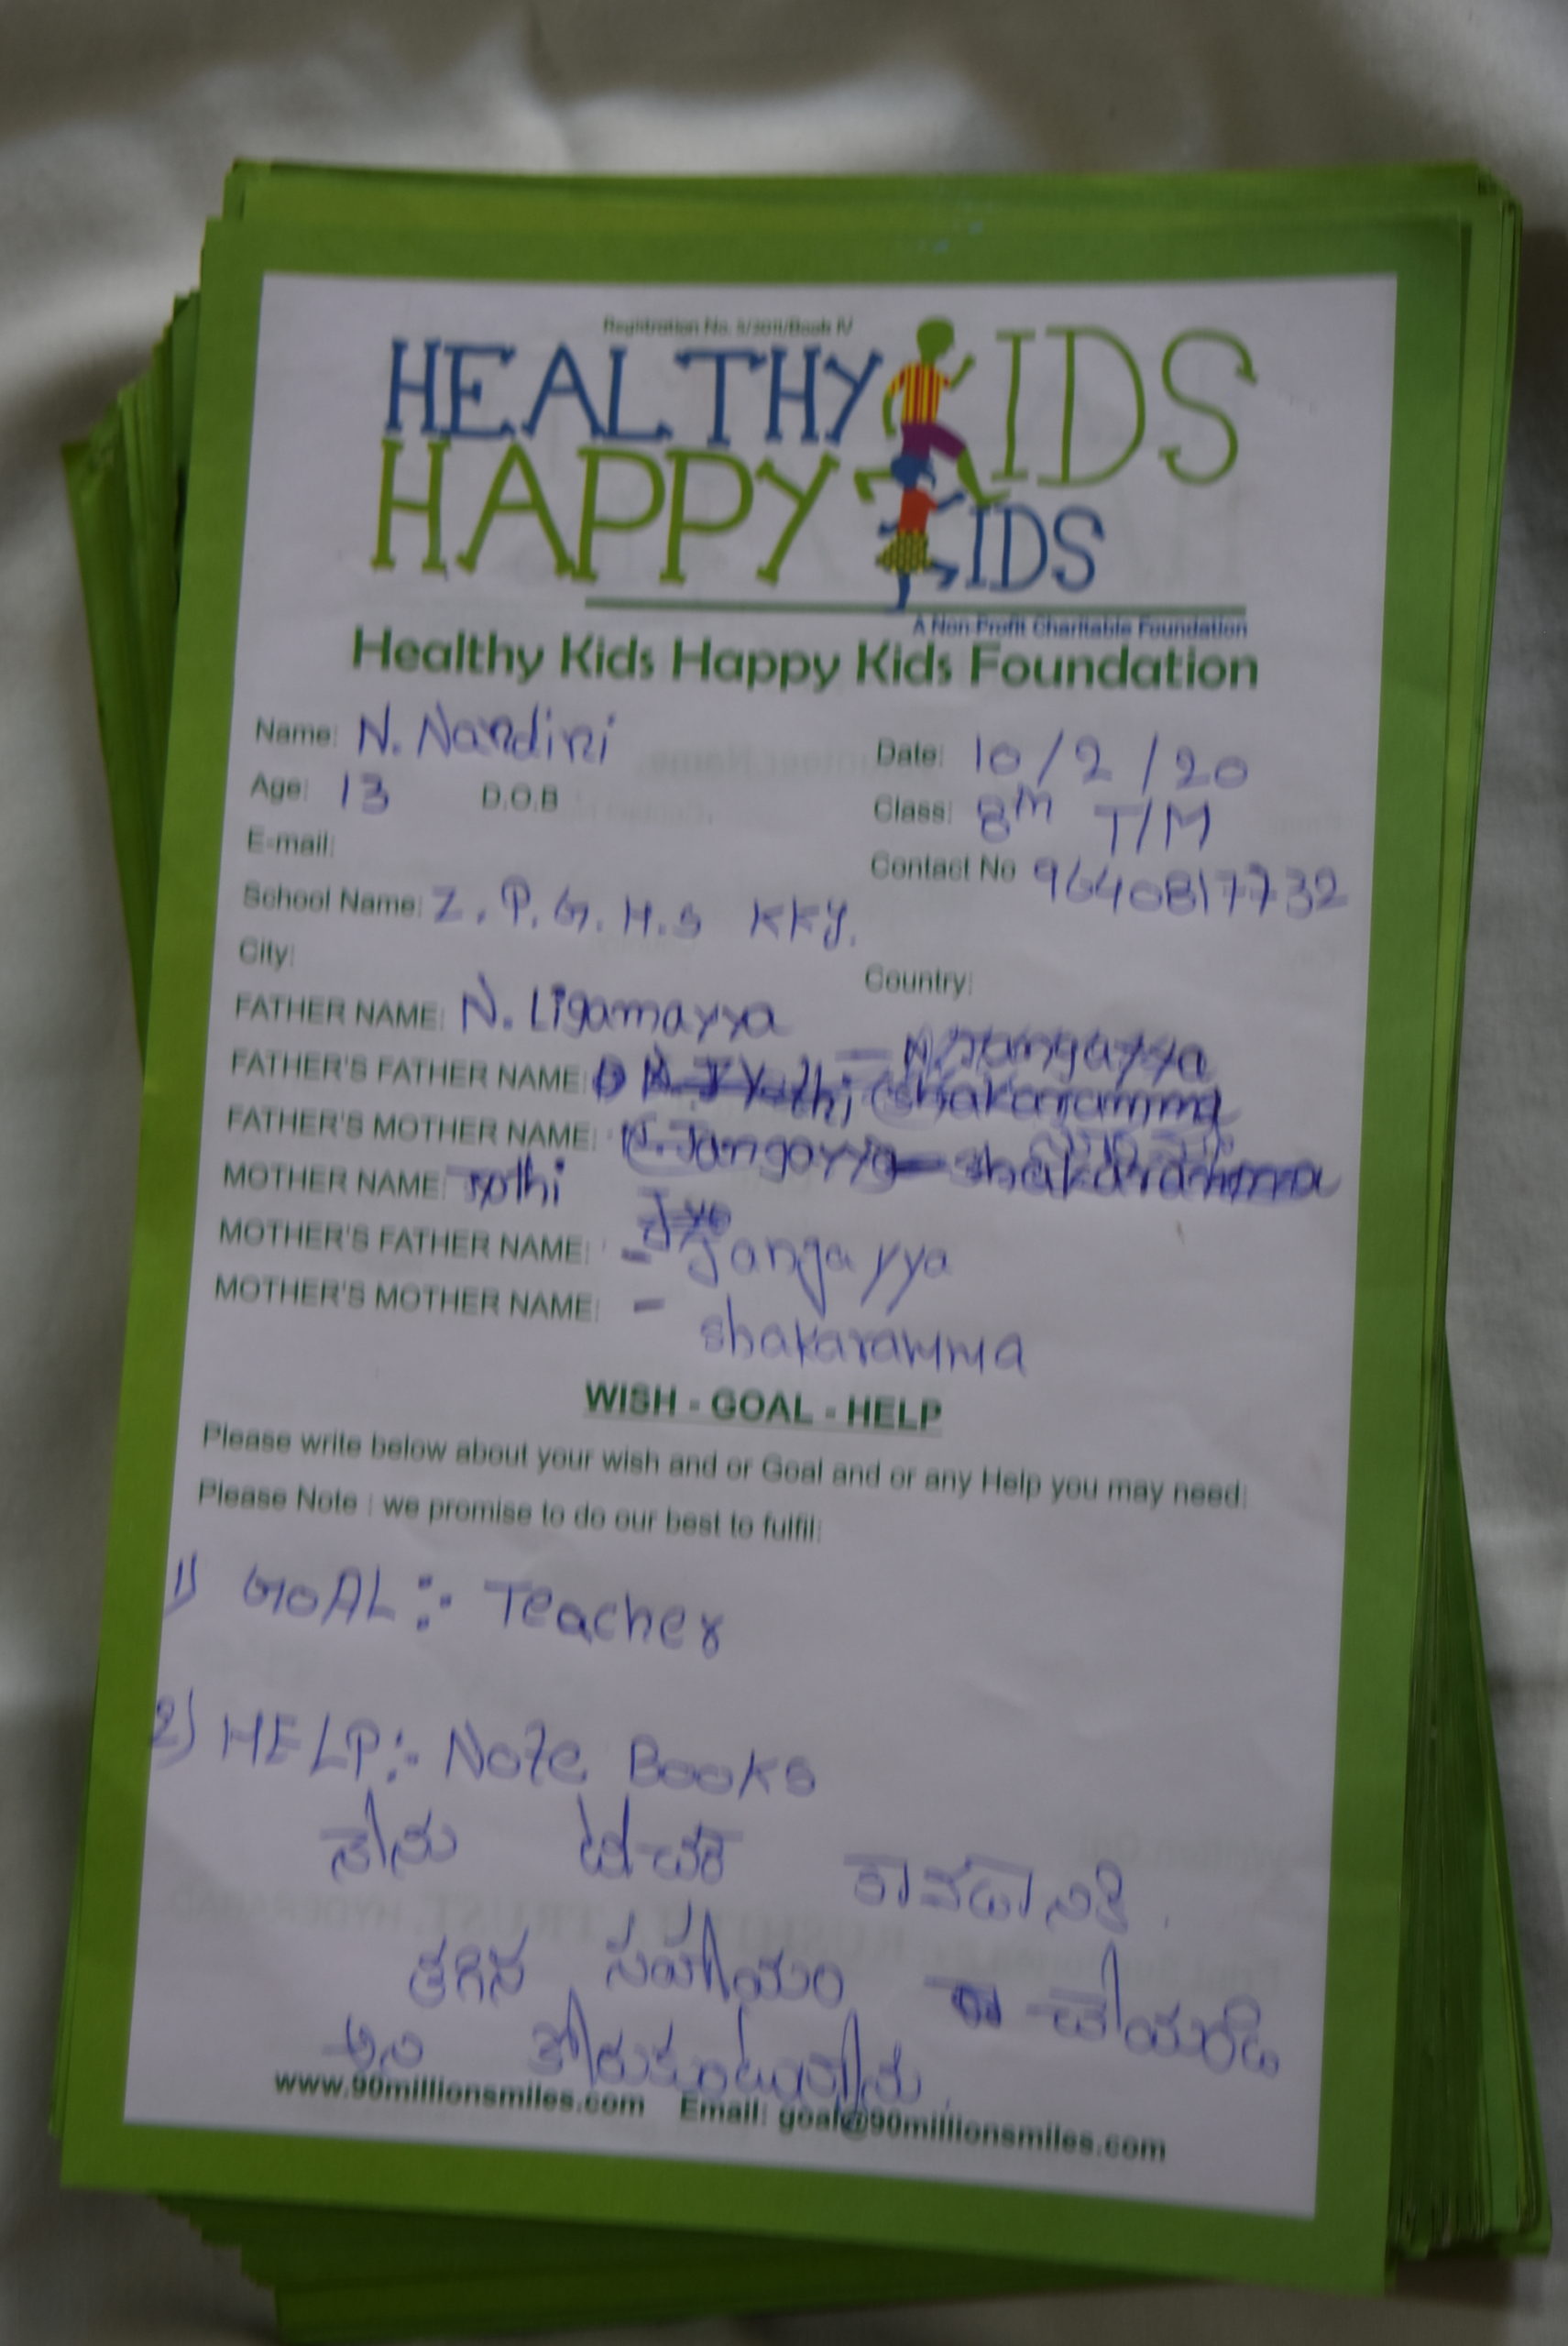 Registration No. 5/2011/Book IV
HEALTHY KIDS
HAPPY KIDS
A Non-Profit Charitable Foundation
Healthy Kids Happy Kids Foundation
Name: N. Nandini Date: 10/2/20
Age: 13 D.O.B Class: 8th T/M
E-mail: Contact No 9640817732
School Name: Z.P.G.H.S KKY.
City: Country:
FATHER NAME: N. Ligamayya
FATHER'S FATHER NAME: N. Jangayya
FATHER'S MOTHER NAME: shakaramma
MOTHER NAME: Jythi
MOTHER'S FATHER NAME: - Jangayya
MOTHER'S MOTHER NAME: - shakaramma
WISH - GOAL - HELP
Please write below about your wish and or Goal and or any Help you may need:
Please Note : we promise to do our best to fulfil:
1) GOAL :- Teacher
2) HELP:- Note Books
నేను టీచర్ కావడానికి.
తగిన సహాయం చేయండి
అని కోరుకుంటున్నాను.
www.90millionsmiles.com Email: goal@90millionsmiles.com